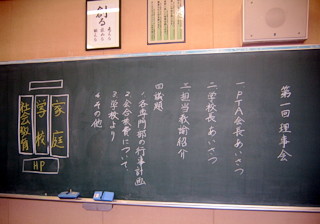 第一回理事会
一、PTA会長あいさつ
二、学校長あいさつ
三、担当教諭紹介
四、議題
1.各専門部の行事計画
2.会合旅費について
3.学校より
4.その他
家庭
学校
社会教育
HP
創る